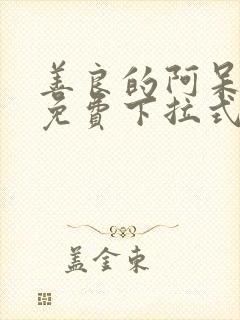 善良的阿呆
免费下拉式
盖金东